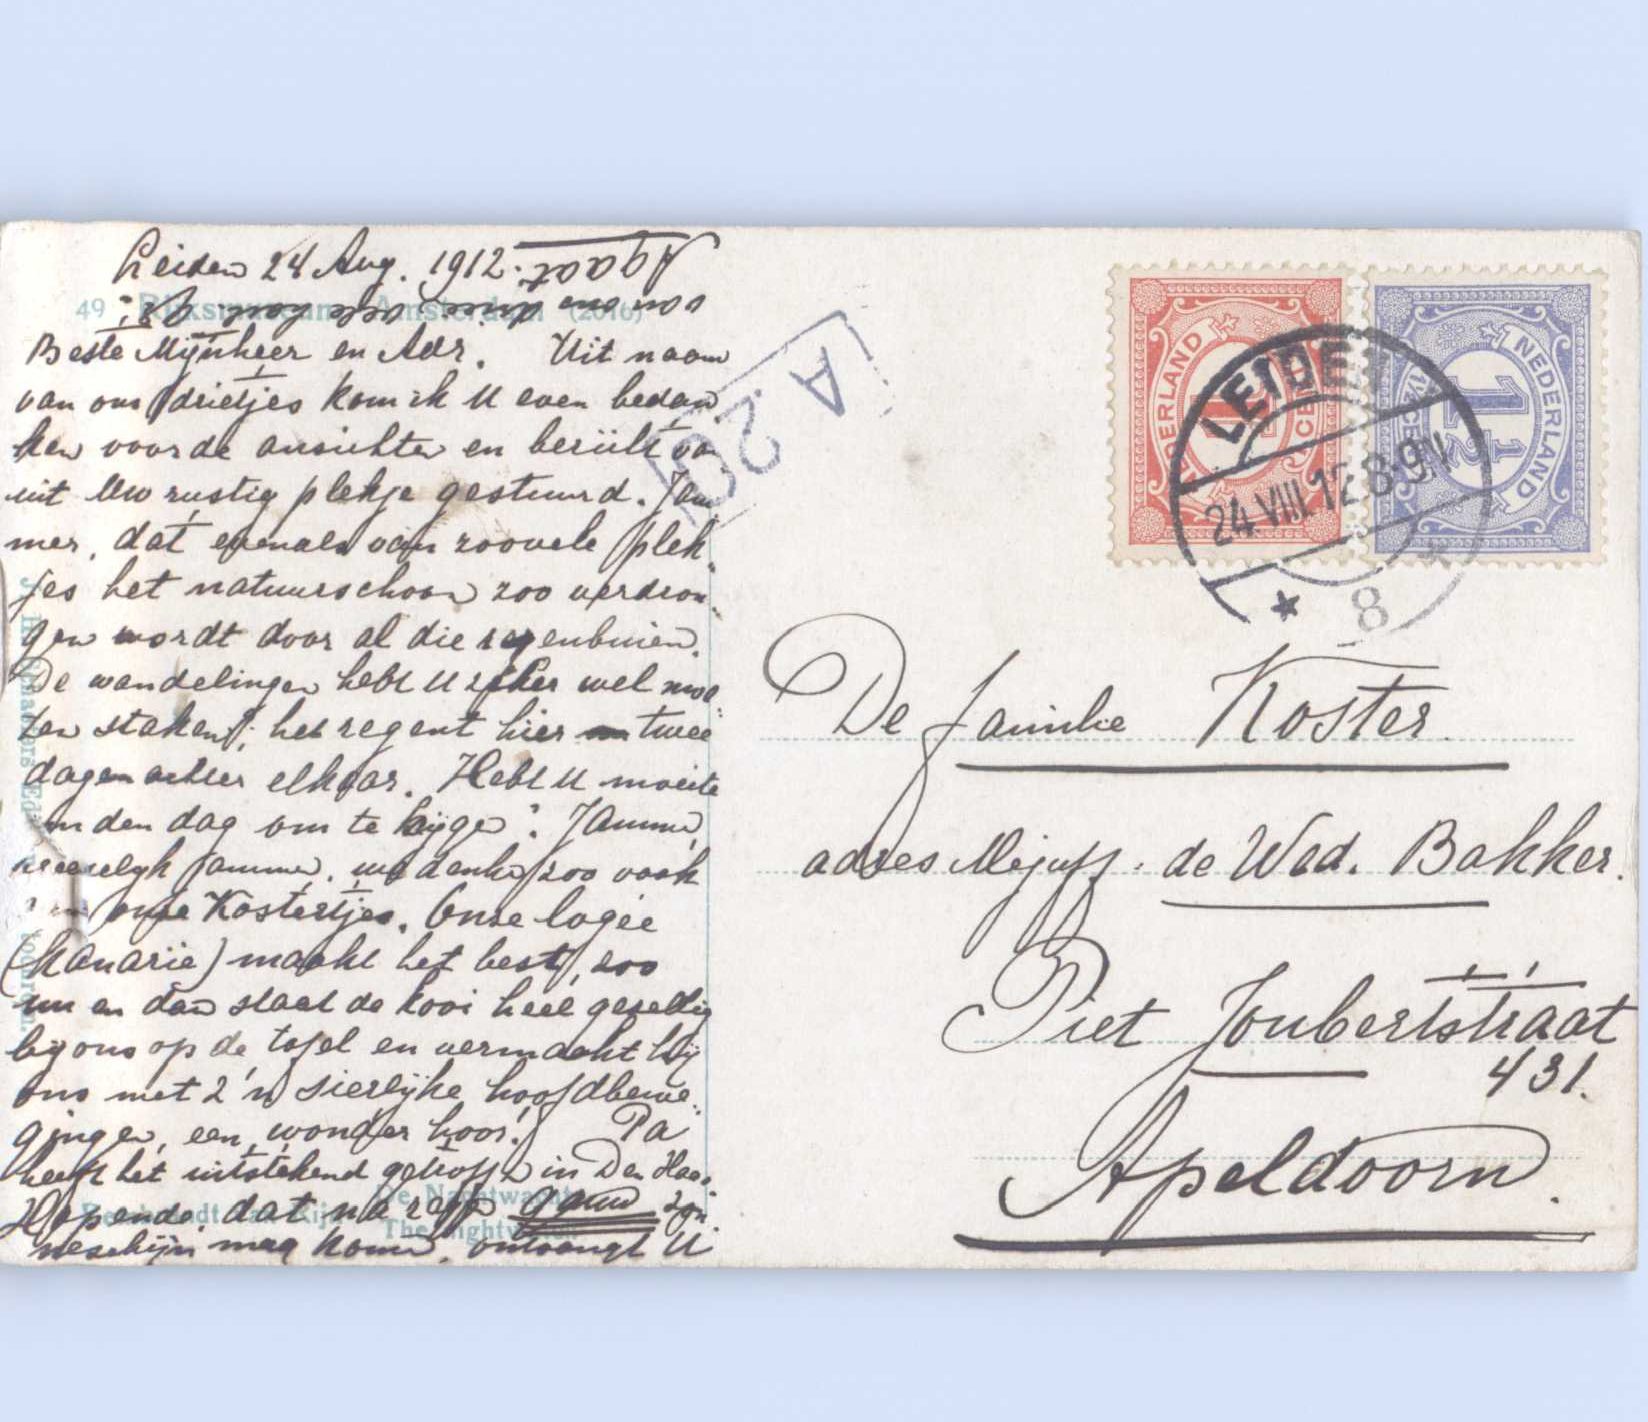 Leiden 24 Aug. 1912.
49 Rijksmuseum Amsterdam (2016)
Beste Mijnheer en Adr. Uit naam
van ons drietjes kom ik U even bedan
ken voor de ansichten en
uit Uw rustig plekje gestuurd. Jam
mer, dat evenals van zoovele plek
jes het natuurschoon zoo verdron
gen wordt door al die regenbuien.
De wandelingen hebt U zeker wel moe
ten staken, het regent hier twee
dagen achter elkaar. Hebt U moeite
den dag om te krijgen? Jammer,
jammer, we denken zoo vaak
onze Kostertjes. Onze logée
(Kanarie) maakt het best, zoo
nu en dan staat de kooi heel gezellig
bij ons op de tafel en vermaakt hij
ons met z'n sierlijke hoofdbewe
gingen, een wonder hoor! Pa
heeft het uitstekend getroffen in Den Haag.
Hopende, dat na regen gauw zon
neschijn mag komen, ontvangt U
Rembrandt van Rijn
De Nachtwacht
The Nightwatch
A.
NEDERLAND
1
CENT
NEDERLAND
1½
1½ CENT
LEIDEN
24 VIII 12 8-9N
8
De familie Koster
adres Mejuff. de Wed. Bakker.
Piet Joubertstraat
431.
Apeldoorn.